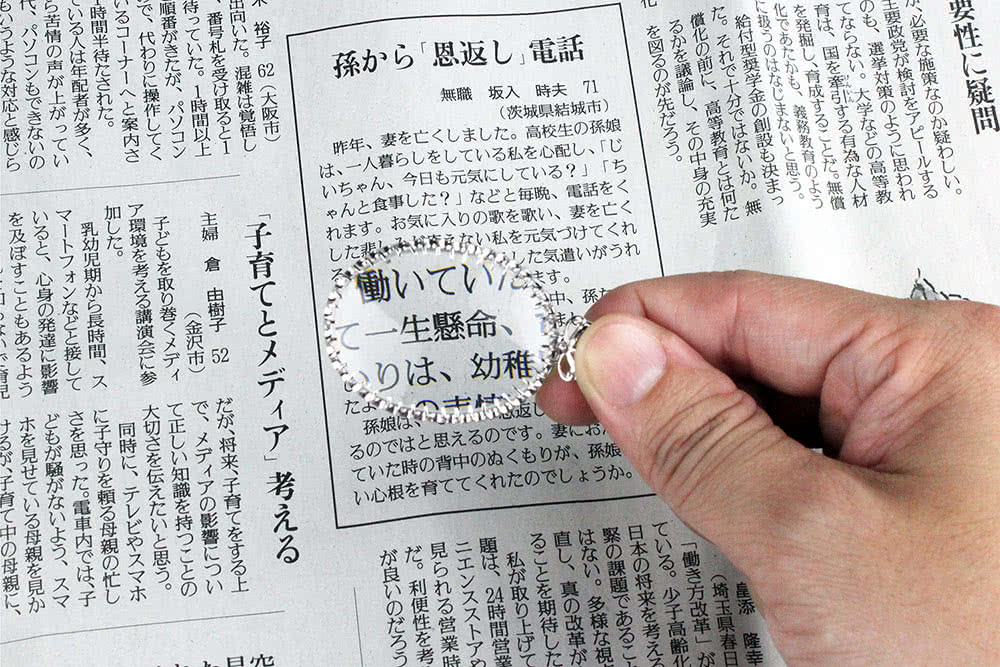 要性に疑問
か、必要な施策なのか疑わしい。
主要政党が検討をアピールする
のも、選挙対策のように思われ
てならない。大学などの高等教
育は、国を牽引する有為な人材
を発掘し、育成することだ。無償
化であたかも、義務教育のよう
に扱うのはなじまないと思う。
給付型奨学金の創設も決まっ
た。それで十分ではないか。無
償化の前に、高等教育とは何た
るかを議論し、その中身の充実
を図るのが先だろう。
孫から「恩返し」電話
無職 坂入 時夫 71
(茨城県結城市)
昨年、妻を亡くしました。高校生の孫娘
は、一人暮らしをしている私を心配し、「じ
いちゃん、今日も元気にしている?」「ち
ゃんと食事した?」などと毎晩、電話をく
れます。お気に入りの歌を歌い、妻を亡く
した悲しみが
ない私を元気づけてくれ
る
した気遣いがうれ
ます。
中、孫
働いてい
て一生懸命、
りは、幼稚
の表情
たよ
孫娘は、
恩返し
るのではと思えるのです。妻にお
ていた時の背中のぬくもりが、孫娘
い心根を育ててくれたのでしょうか。
米 裕子 62(大阪市)
出向いた。混雑は覚悟し
、番号札を受け取ると1
待っていた。1時間以上
順番がきたが、パソコン
で、代わりに操作してく
いるコーナーへと案内さ
1時間半待たされた。
ている人は年配者が多く、
ら苦情の声が上がってい
代、パソコンもできないの
もいうような対応と感じら
「子育てとメディア」考える
主婦 倉 由樹子 52
(金沢市)
子どもを取り巻くメディ
ア環境を考える講演会に参
加した。
乳幼児期から長時間、ス
マートフォンなどと接して
いると、心身の発達に影響
を及ぼすこともあるよう
だが、将来、子育てをする上
で、メディアの影響につい
て正しい知識を持つことの
大切さを伝えたいと思う。
同時に、テレビやスマホ
に子守りを頼る母親の忙し
さを思った。電車内では、子
どもが騒がないよう、スマ
ホを見せている母親を見か
けるが、子育て中の母親に、
隆幸
(埼玉県春日
「働き方改革」が
ている。少子高齢化
日本の将来を考える
緊の課題であること
はない。多様な視
直し、真の改革が
ることを期待した
私が取り上げて
題は、24時間営
ニエンスストアや
見られる営業時
だ。利便性を考
が良いのだろう